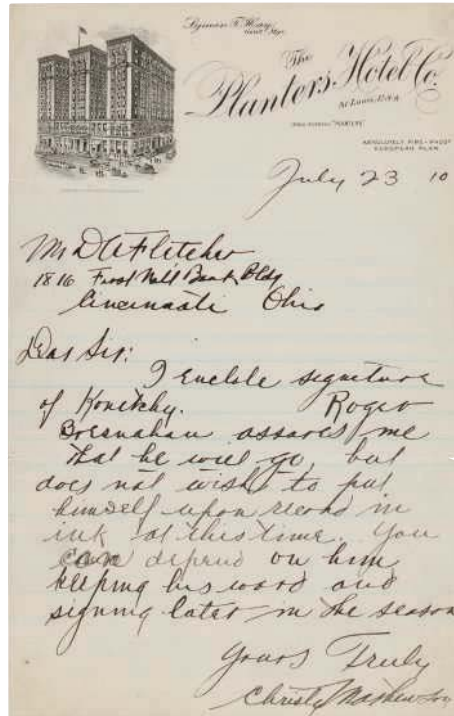 Lyman T. Hay
The
Planters Hotel Co.
St. Louis, U.S.A.
ABSOLUTELY FIRE-PROOF
EUROPEAN PLAN
July 23 10
Mr D A Fletcher
1816 First Nat'l Bank Bldg
Cincinnati Ohio
Dear Sir:
I enclose signature
of Konetchy. Roger
Bresnahan assures me
that he will go, but
does not wish to put
himself upon record in
ink at this time. You
can depend on him
keeping his word and
signing later in the season
Yours Truly
Christy Mathewson